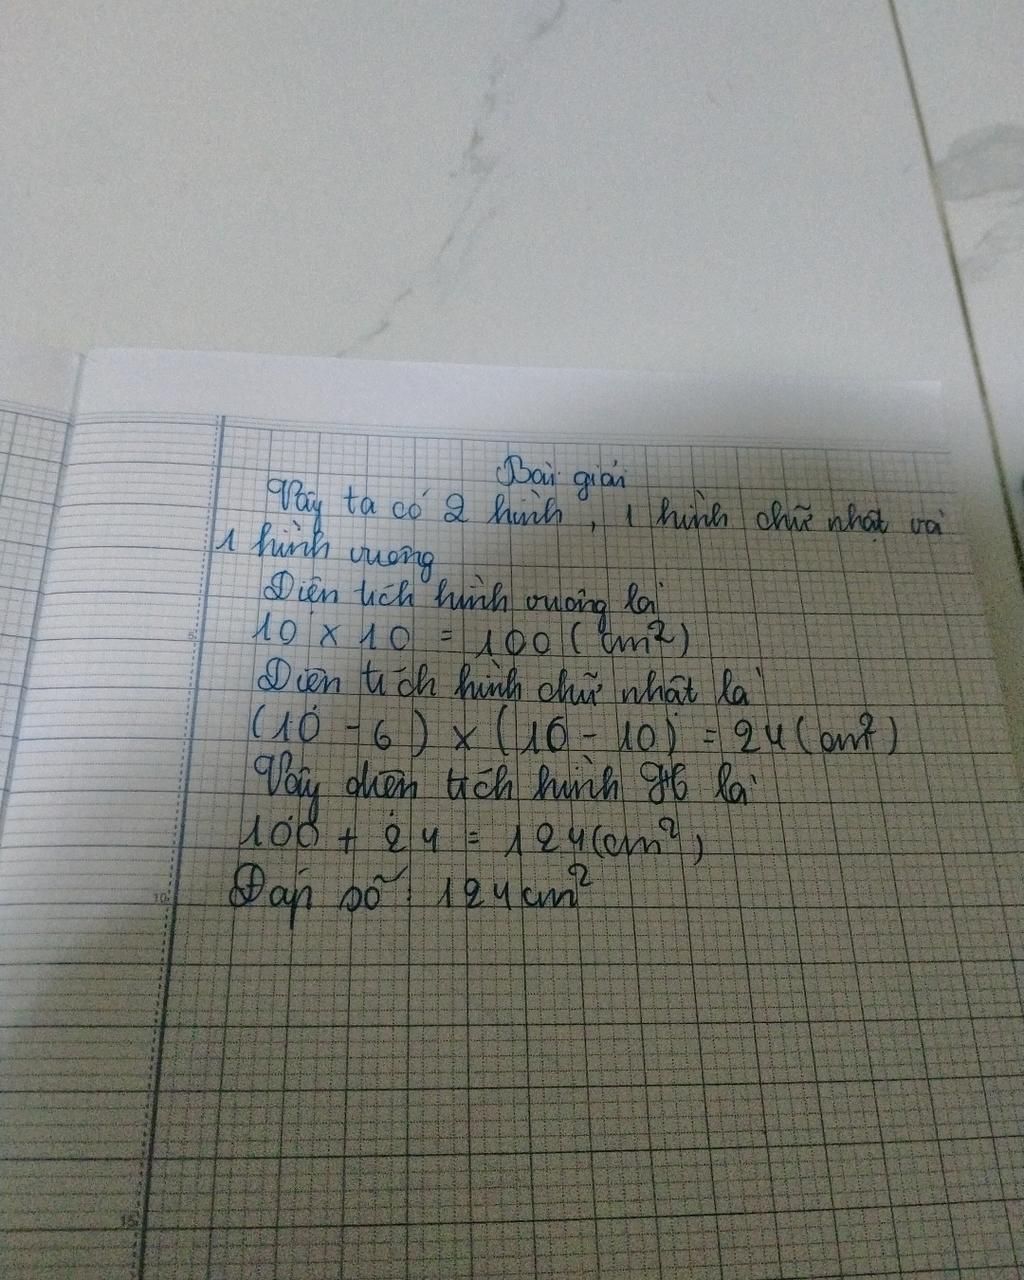 Bài giải
Vậy ta có 2 hình, 1 hình chữ nhật và
1 hình vuông
Diện tích hình vuông là
10 x 10 = 100 (cm²)
Diện tích hình chữ nhật là
(10 - 6) x (16 - 10) = 24 (cm²)
Vậy diện tích hình H là
100 + 24 = 124 (cm²)
Đáp số: 124 cm²
5
10
15